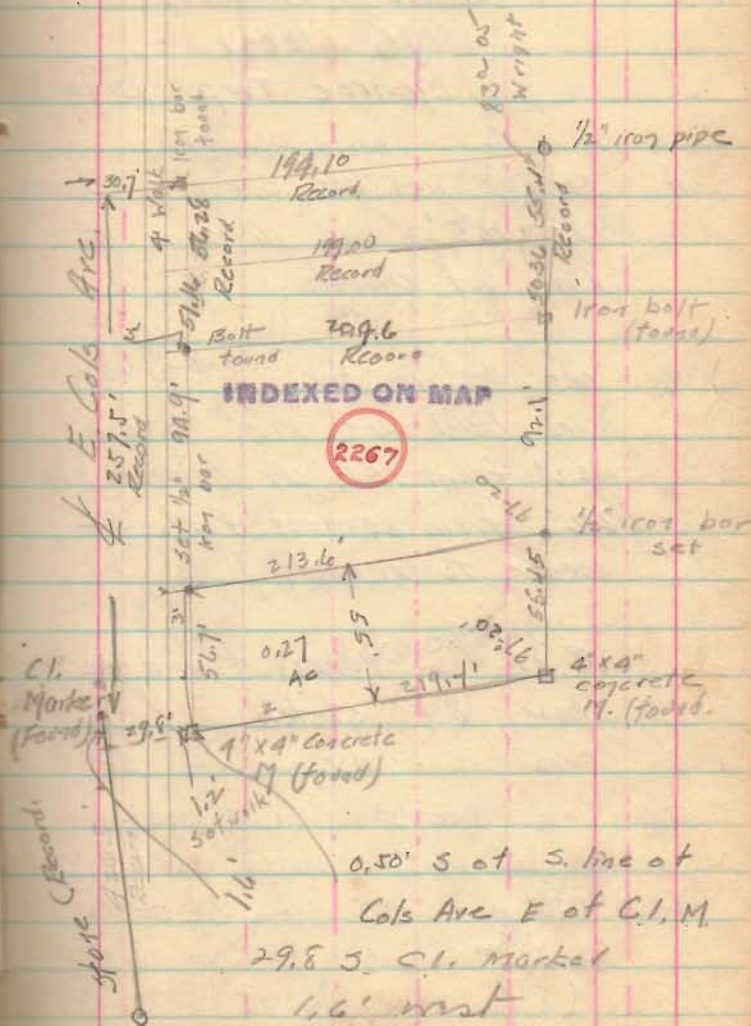 83°-05
Wright
1/2" iron pipe
Iron bar
found
30.7
4' Walk
194.10
Record
55.45
Record
56.28
Record
199.00
Record
50.36
51.16
Bolt
found
Record
Iron bolt
(found)
INDEXED ON MAP
2267
℄ E Cols Ave.
257.5'
Record
92.1'
Set 1/2"
Iron bar
97-20
1/2" iron bar
set
213.6'
55.45
3'
56.7'
55'
0.27
Ac
97-20'
219.4'
4" x 4"
concrete
M. (found.
C.I.
Marker
(Found)
29.8'
4" x 4" Concrete
M (found)
1.2'
S of walk
1.6'
Stone (Record.
0.50' S of S. line of
Cols Ave E of C.I. M.
29.8 S. C.I. Marker
1.6' west